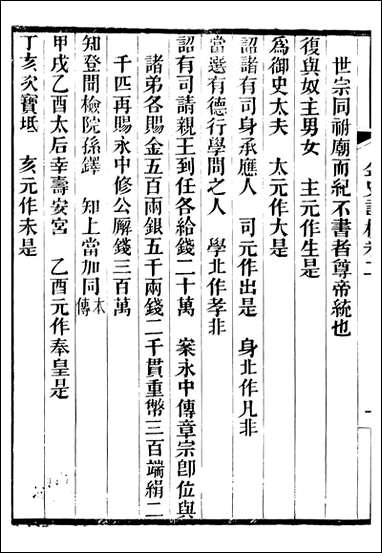 金史詳校卷二
世宗同祔廟而紀不書者尊帝統也
復與奴主男女　主元作生是
爲御史太夫　太元作大是
詔諸有司身承應人　司元作出是　身北作凡非
當選有德行學問之人　學北作孝非
詔有司請親王到任各給錢二十萬　案永中傳章宗卽位與
諸弟各賜金五百兩銀五千兩錢二千貫重幣三百端絹二
千匹再賜永中修公廨錢三百萬
知登聞檢院孫鐸　知上當加同本傳
甲戌乙酉太后幸壽安宮　乙酉元作奉皇是
丁亥次寶坻　亥元作未是